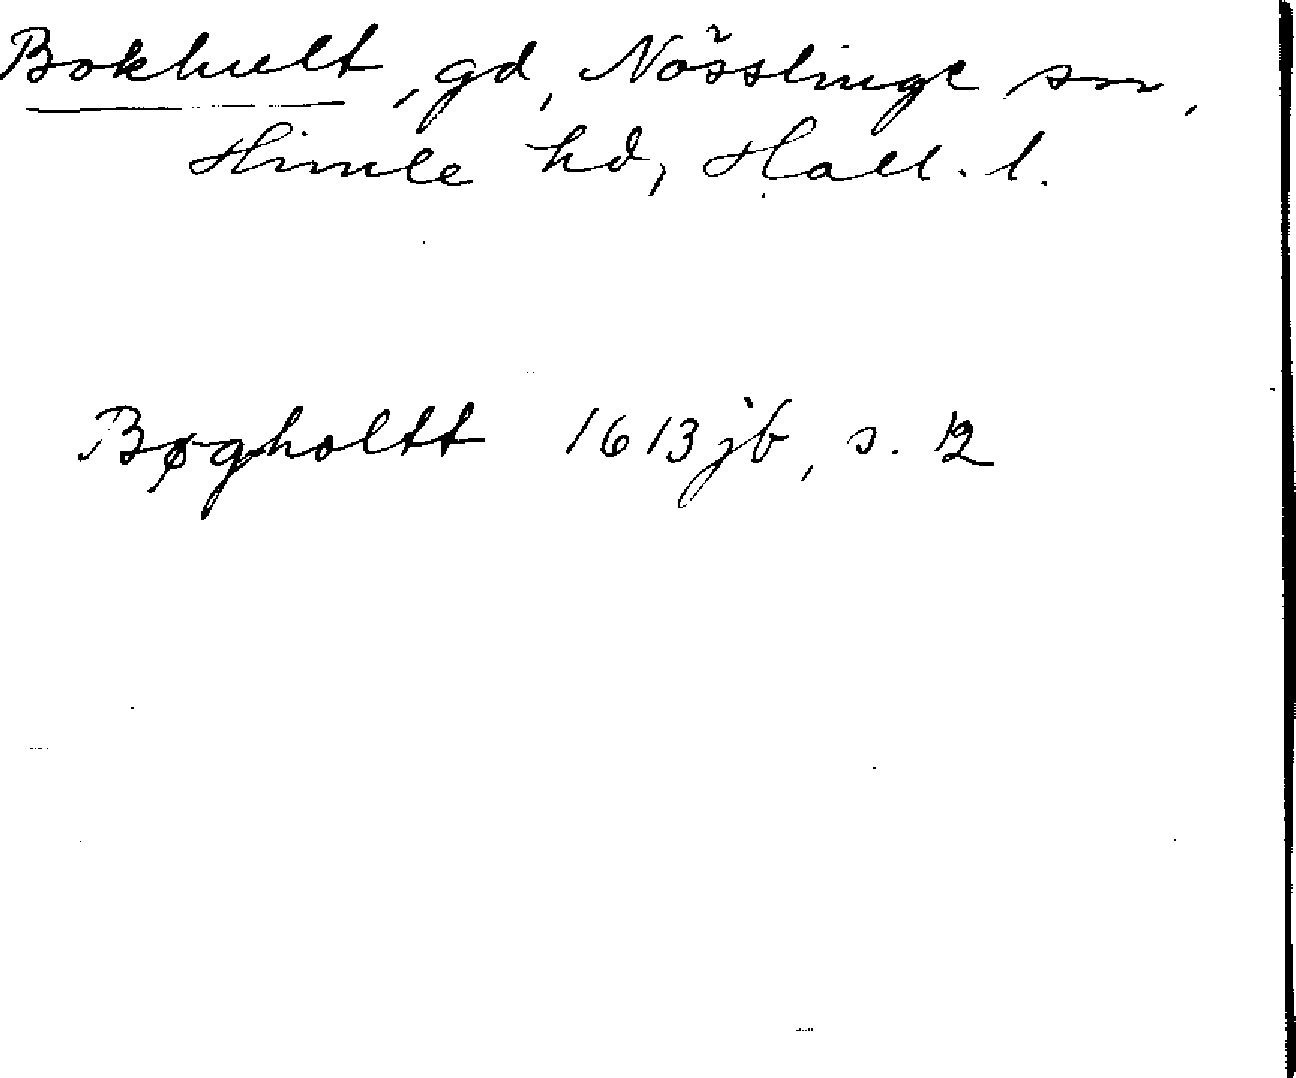 Bokhult, gd, Nösslinge sn,
Himle hd, Hall. l.
Bøgholtt 1613 jb, s. 12